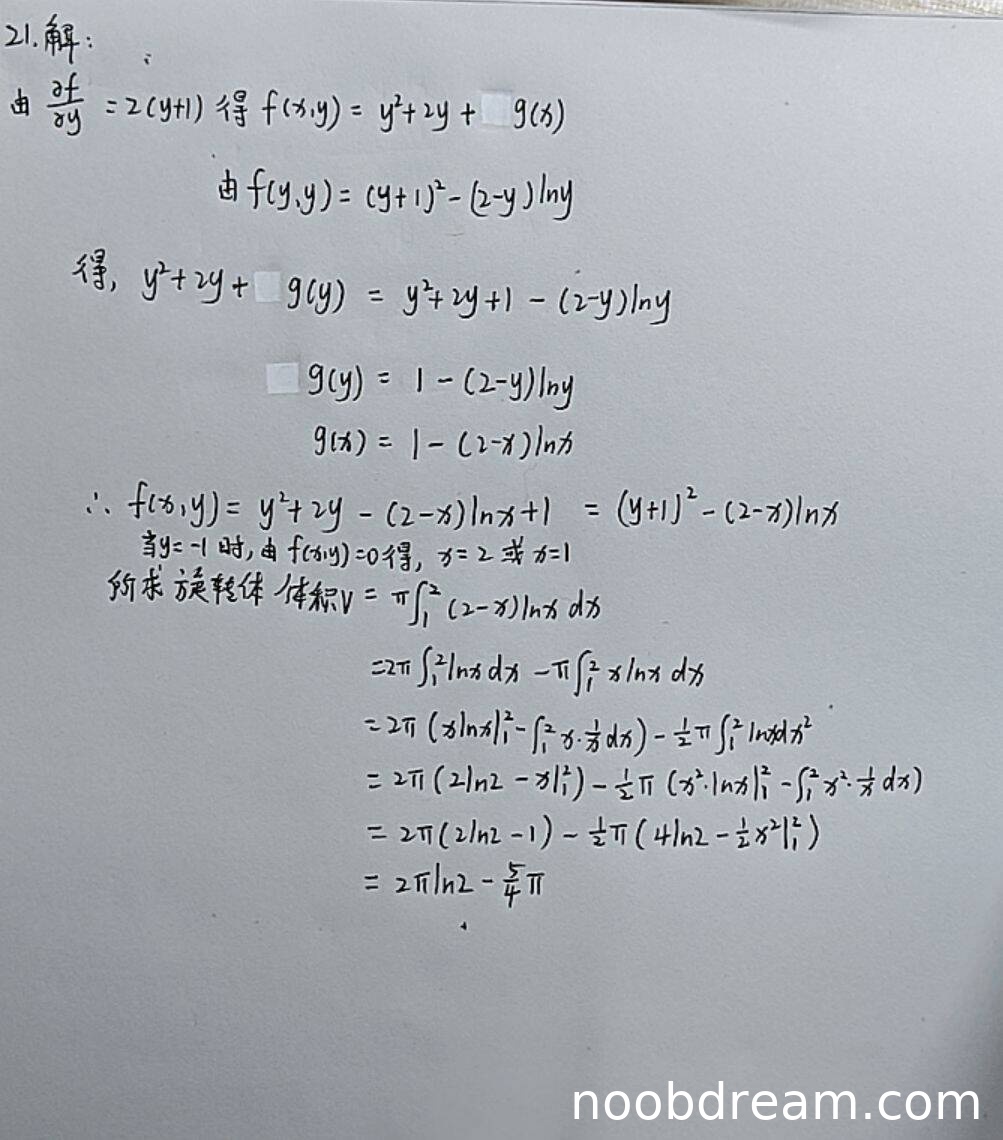 21.解:
由 ∂f/∂y = 2(y+1) 得 f(x,y) = y²+2y + g(x)
由 f(y,y) = (y+1)² - (2-y)lny
得, y²+2y + g(y) = y²+2y+1 - (2-y)lny
g(y) = 1 - (2-y)lny
g(x) = 1 - (2-x)lnx
∴ f(x,y) = y²+2y - (2-x)lnx+1 = (y+1)² - (2-x)lnx
当y=-1时,由 f(x,y)=0得, x=2 或 x=1
所求旋转体体积V = π∫₁²(2-x)lnx dx
=2π∫₁²lnxdx - π∫₁² xlnx dx
=2π(xlnx|₁² - ∫₁² x·1/x dx) - 1/2 π∫₁² lnxdx²
= 2π(2ln2 - x|₁²) - 1/2 π (x²·lnx|₁² - ∫₁² x²·1/x dx)
= 2π(2ln2 - 1) - 1/2 π(4ln2 - 1/2 x²|₁²)
= 2πln2 - 5/4 π
noobdream.com